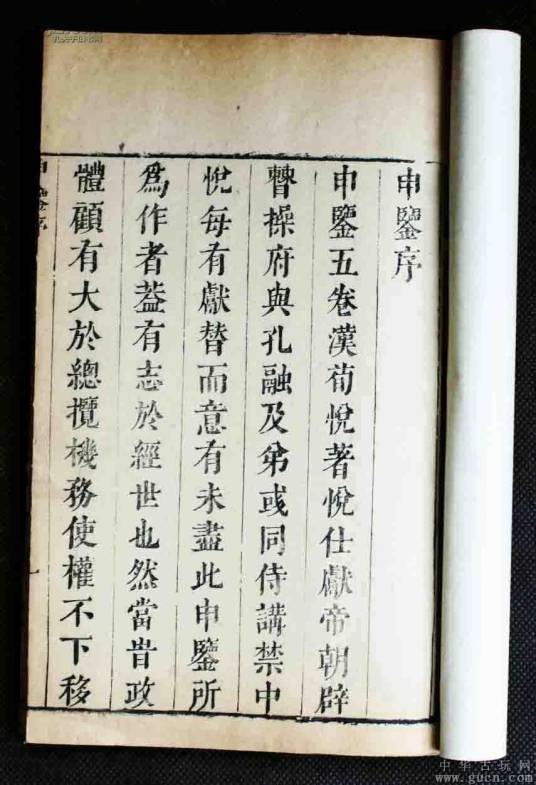 申鑒序
申鑒五卷漢荀悅著悅仕獻帝朝辟
曹操府與孔融及弟或同侍講禁中
悅每有獻替而意有未盡此申鑒所
爲作者葢有志於經世也然當旹政
體顧有大於總攬機務使權不下移
孔夫子旧书网
中华古玩网
www.gucn.com